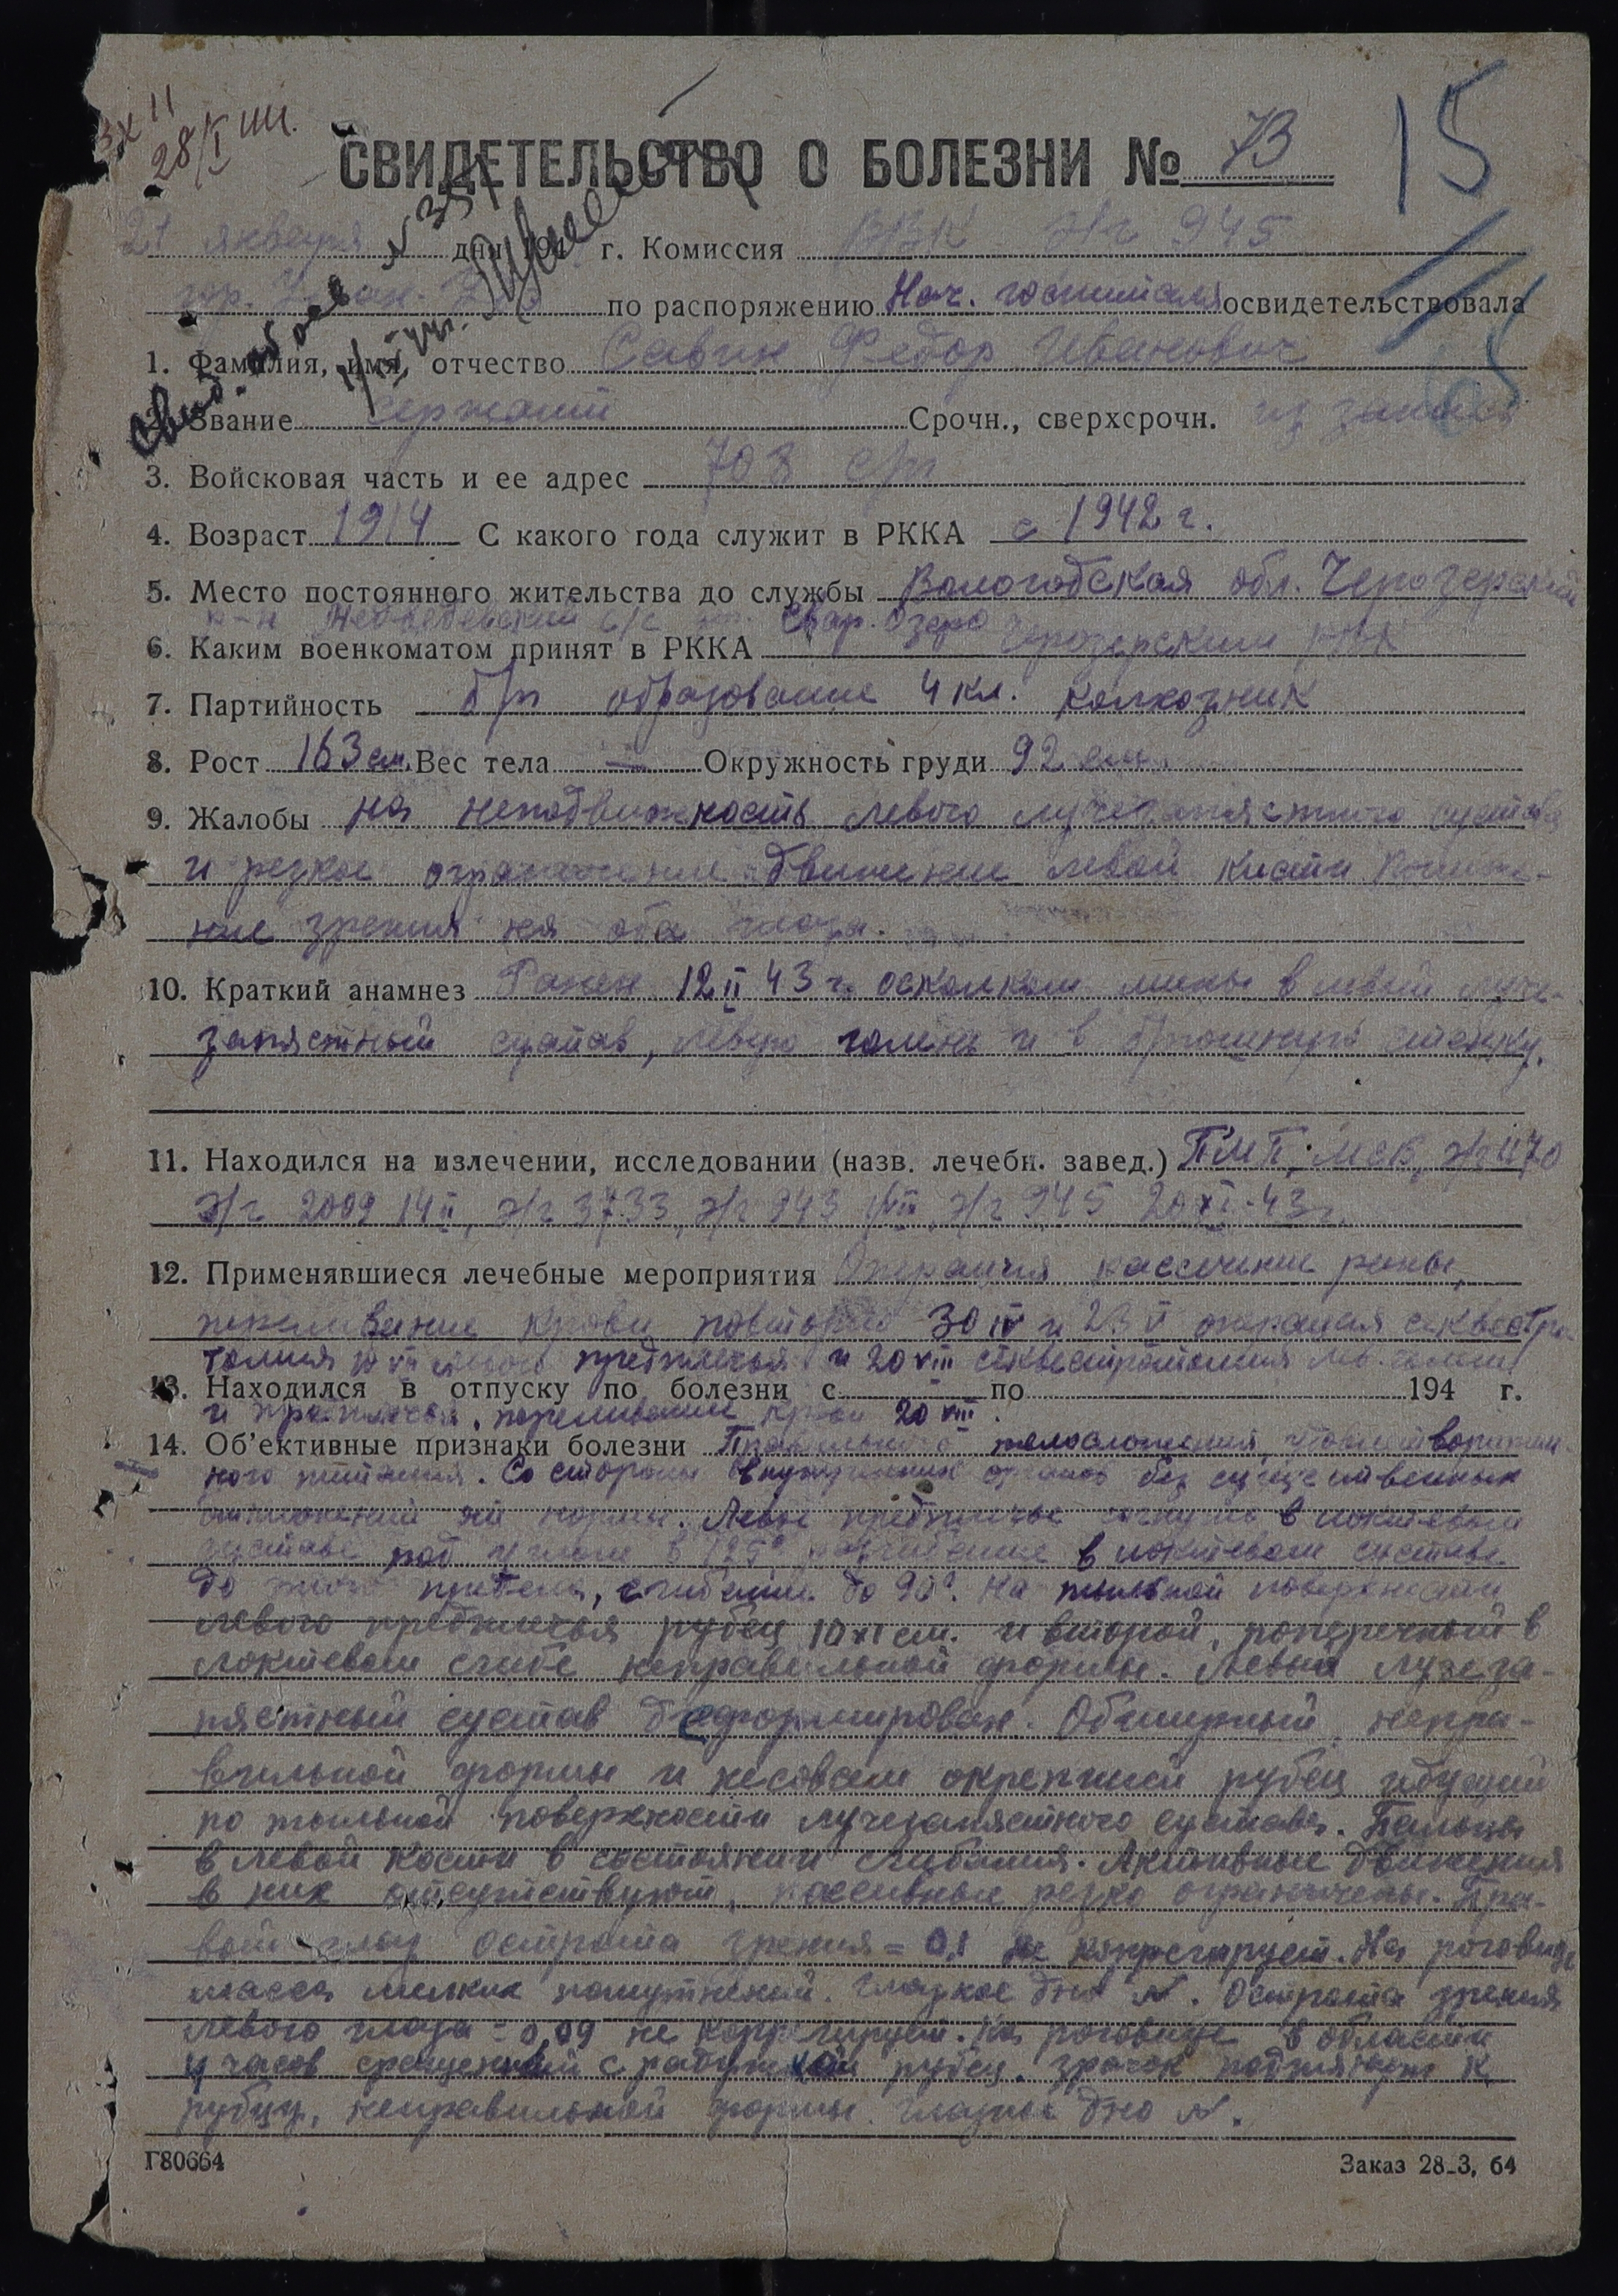 28/I
СВИДЕТЕЛЬСТВО О БОЛЕЗНИ № 73
15
21 января дня 194 г. Комиссия ВВК э/г 945
гор. Улан-Удэ по распоряжению Нач. госпиталя освидетельствовала
1. Фамилия, имя, отчество Савин Федор Иванович
2. Звание сержант Срочн., сверхсрочн. из запаса
3. Войсковая часть и ее адрес 708 с/п
4. Возраст 1914 С какого года служит в РККА с 1942 г.
5. Место постоянного жительства до службы Вологодская обл. Чарозерский
р-н Медведевский с/с Озеро
6. Каким военкоматом принят в РККА Чарозерским РВК
7. Партийность б/п образование 4 кл. колхозник
8. Рост 163 см. Вес тела — Окружность груди 92 см.
9. Жалобы на неподвижность левого лучезапястного сустава
и резкое ограничение движение левой кисти Пониже-
ние зрения на оба глаза.
10. Краткий анамнез Ранен 12 II 43 г. осколком мины в левый луче-
запястный сустав, левую голень и в брюшную стенку.
11. Находился на излечении, исследовании (назв. лечебн. завед.) ПМП, МСБ, э/г 1170
э/г 2009 14 II, э/г 3733, э/г 943 э/г 945 20 XI-43 г.
12. Применявшиеся лечебные мероприятия Операция рассечение раны,
переливание крови повторно 30 IV и 23 V операция секвестро-
томия 10 VII левого предплечья и 20 VIII секвестротомия лев. голени
13. Находился в отпуску по болезни с - по 194 г.
и предплечья, переливание крови 20 VIII.
14. Об'ективные признаки болезни Правильного телосложения, удовлетворитель-
ного питания. Со стороны внутренних органов без существенных
отклонений от нормы. Левое предплечье согнуто в локтевом
суставе под углом в 125° разгибание в локтевом суставе
до этого предела, сгибание до 90°. На тыльной поверхности
левого предплечья рубец 10х1 см. и второй, поперечный в
локтевом сгибе неправильной формы. Левый лучеза-
пястный сустав деформирован. Обширный, непра-
вильной формы и несовсем окрепший рубец идущий
по тыльной поверхности лучезапястного сустава. Пальцы
в левой кости в состоянии сгибания. Активные движения
в них отсутствуют, пассивные резко ограничены. Пра-
вый глаз острота зрения = 0,1 не коррегирует. На роговице
масса мелких помутнений. Глазное дно N. Острота зрения
левого глаза = 0,09 не коррегирует. На роговице в области
4 часов сращенный с радужкой рубец. Зрачок подтянут к
рубцу, неправильной формы. Глазное дно N.
Г80664 Заказ 28_3, 64